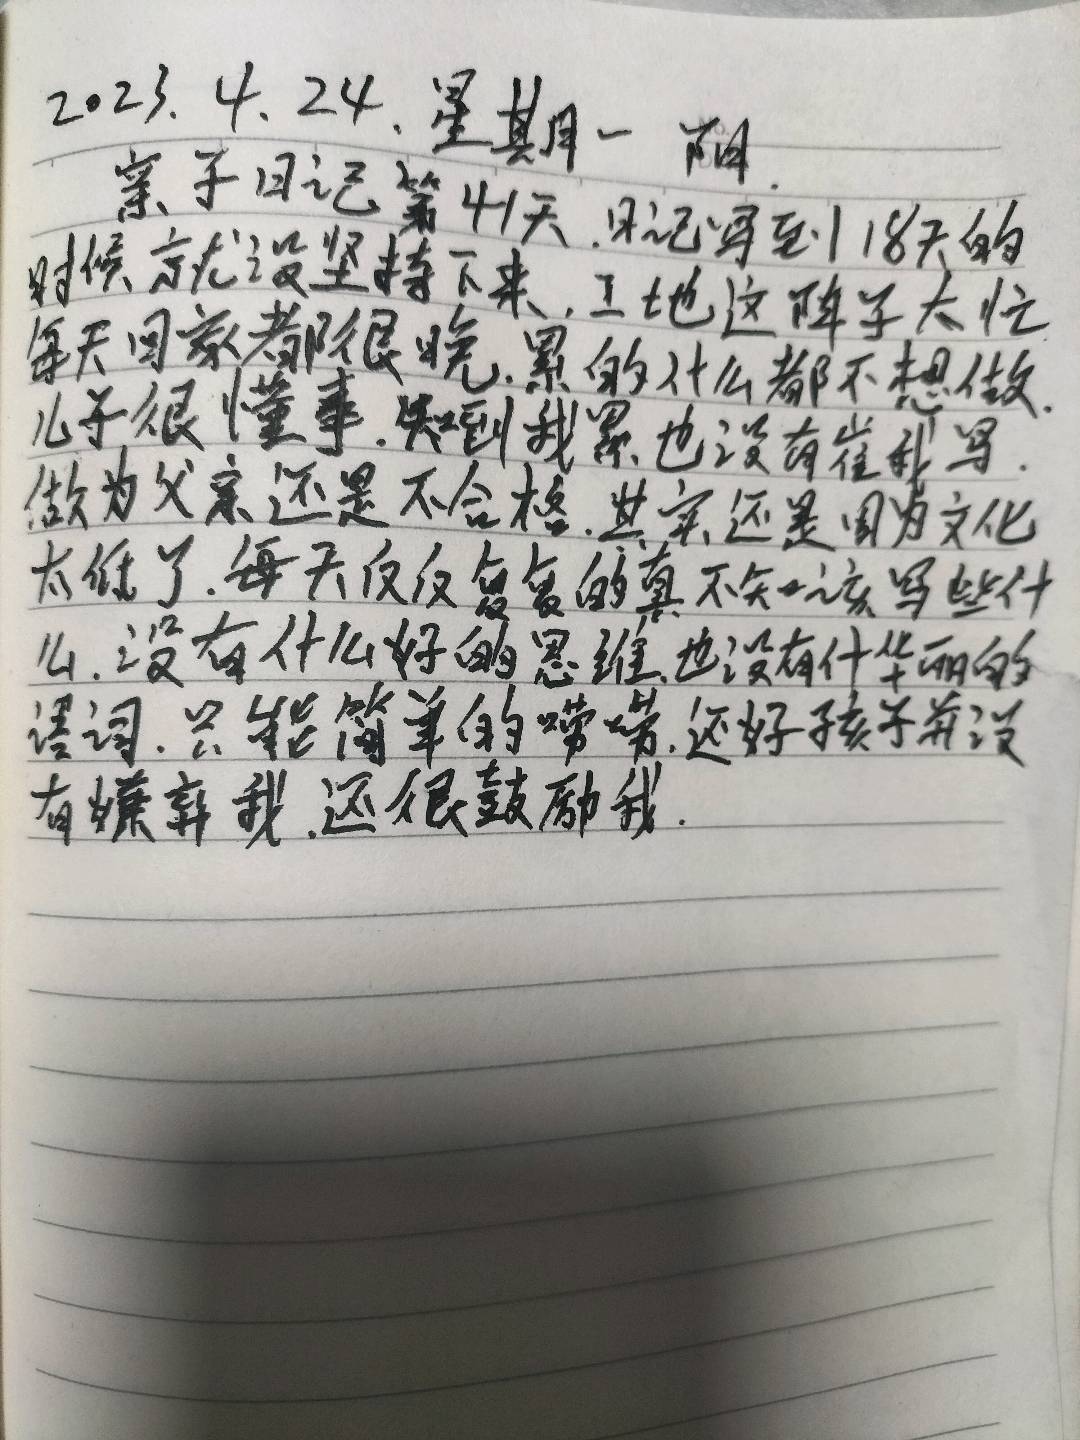 2023.4.24.星期一 阴.
亲子日记第41天.日记写到18天的
时候就没坚持下来.工地这阵子太忙
每天回家都很晚.累的什么都不想做.
儿子很懂事.知到我累也没有崔我写.
做为父亲还是不合格.其实还是因为文化
太低了.每天仅仅复复的真不知该写些什
么.没有什么好的思维.也没有什华丽的
语词.只能简单的唠唠.还好孩子并没
有嫌弃我.还很鼓励我.